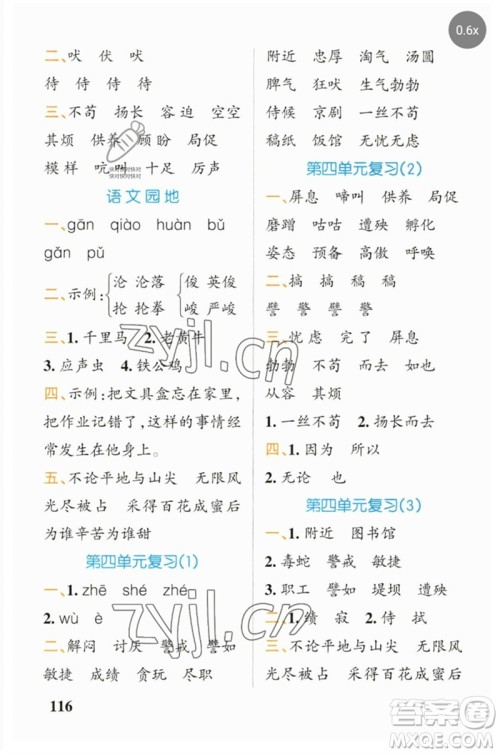 0.6x
二、吠 伏 吠
待 侍 侍 待
三、不苟 扬长 容迫 空空
其烦 供养 顾盼 局促
模样 吭叫 十足 厉声
语文园地
一、gān qiào huàn bǔ
gǎn pǔ
二、示例:
沧 沧落
抢 抢拳
俊 英俊
峻 严峻
三、1. 千里马 2. 老黄牛
3. 应声虫 4. 铁公鸡
四、示例:把文具盒忘在家里,
把作业记错了,这样的事情经
常发生在他身上。
五、不论平地与山尖 无限风
光尽被占 采得百花成蜜后
为谁辛苦为谁甜
第四单元复习(1)
一、1. zhē shé zhé
2. wù è
二、解闷 讨厌 警戒 譬如
敏捷 成绩 贪玩 尽职
116
附近 忠厚 淘气 汤圆
脾气 狂吠 生气勃勃
侍候 京剧 一丝不苟
稿纸 饭馆 无忧无虑
第四单元复习(2)
一、屏息 啼叫 供养 局促
磨蹭 咕哝 遭殃 孵化
姿态 预备 高傲 呼唤
二、搞 搞 稿 稿
譬 警 警 譬
三、忧虑 完了 屏息
勃勃 不苟 如厕 无给
从容 其烦
1. 一丝不苟 2. 扬长而去
四、1. 因为 所以
2. 无论 也
第四单元复习(3)
一、1. 附近 图书馆
2. 毒蛇 警戒 敏捷
3. 职工 譬如 堤坝 遭殃
二、1. 绩 寂 2. 侍 拭
三、不论平地与山尖 无限风
光尽被占 采得百花成蜜后
zyjl.cn
zyjl.cn
答案圈
MXQE.COM